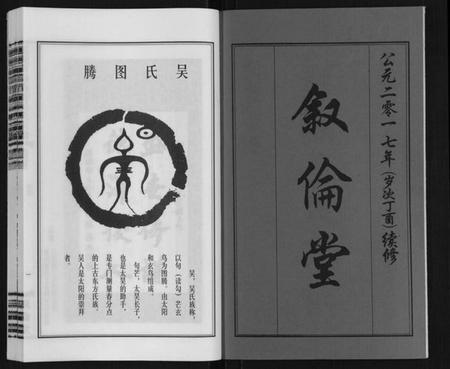 公元二零一七年(岁次丁酉)续修
叙倫堂
吴氏图腾
吴，吴氏族称，
以句（读勾）芒玄
鸟为图腾。由太阳
和玄鸟组成。
句芒，太昊长子，
也是太昊的助手，
是专门测量春分点
的上古东方氏族，
吴人是太阳的崇拜
者。